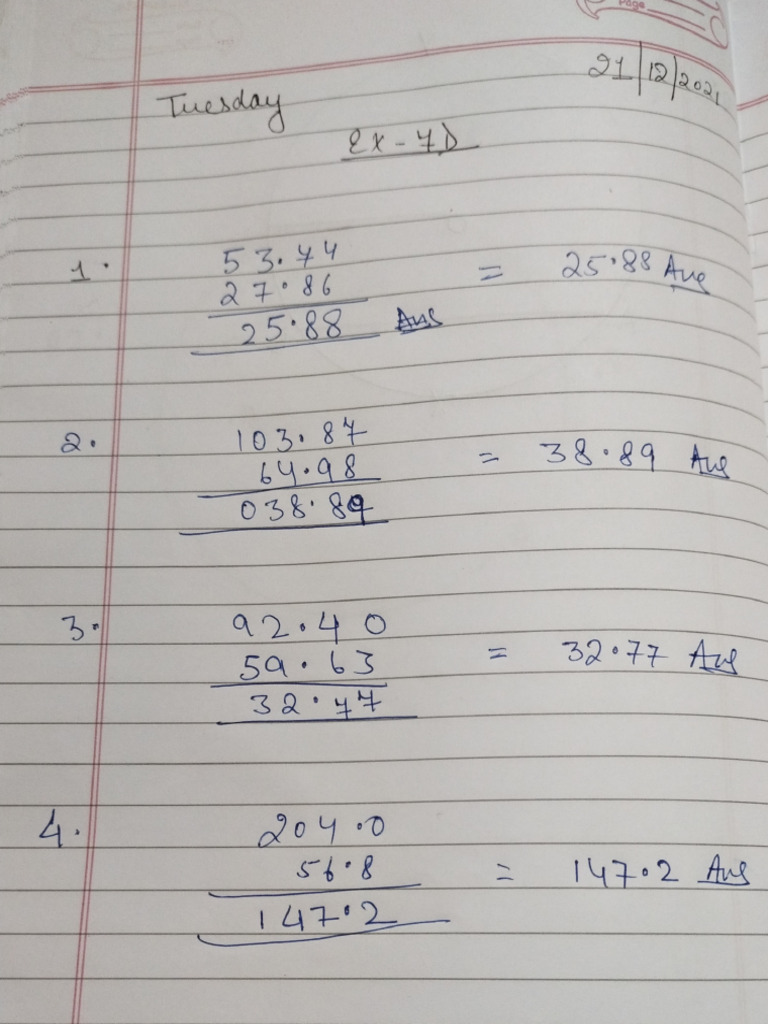 Page
21/12/2021
Tuesday
Ex - 7D
1. 53.74
27.86 = 25.88 Ans
25.88 Ans
2. 103.87
64.98 = 38.89 Ans
038.89
3. 92.40
59.63 = 32.77 Ans
32.77
4. 204.0
56.8 = 147.2 Ans
147.2